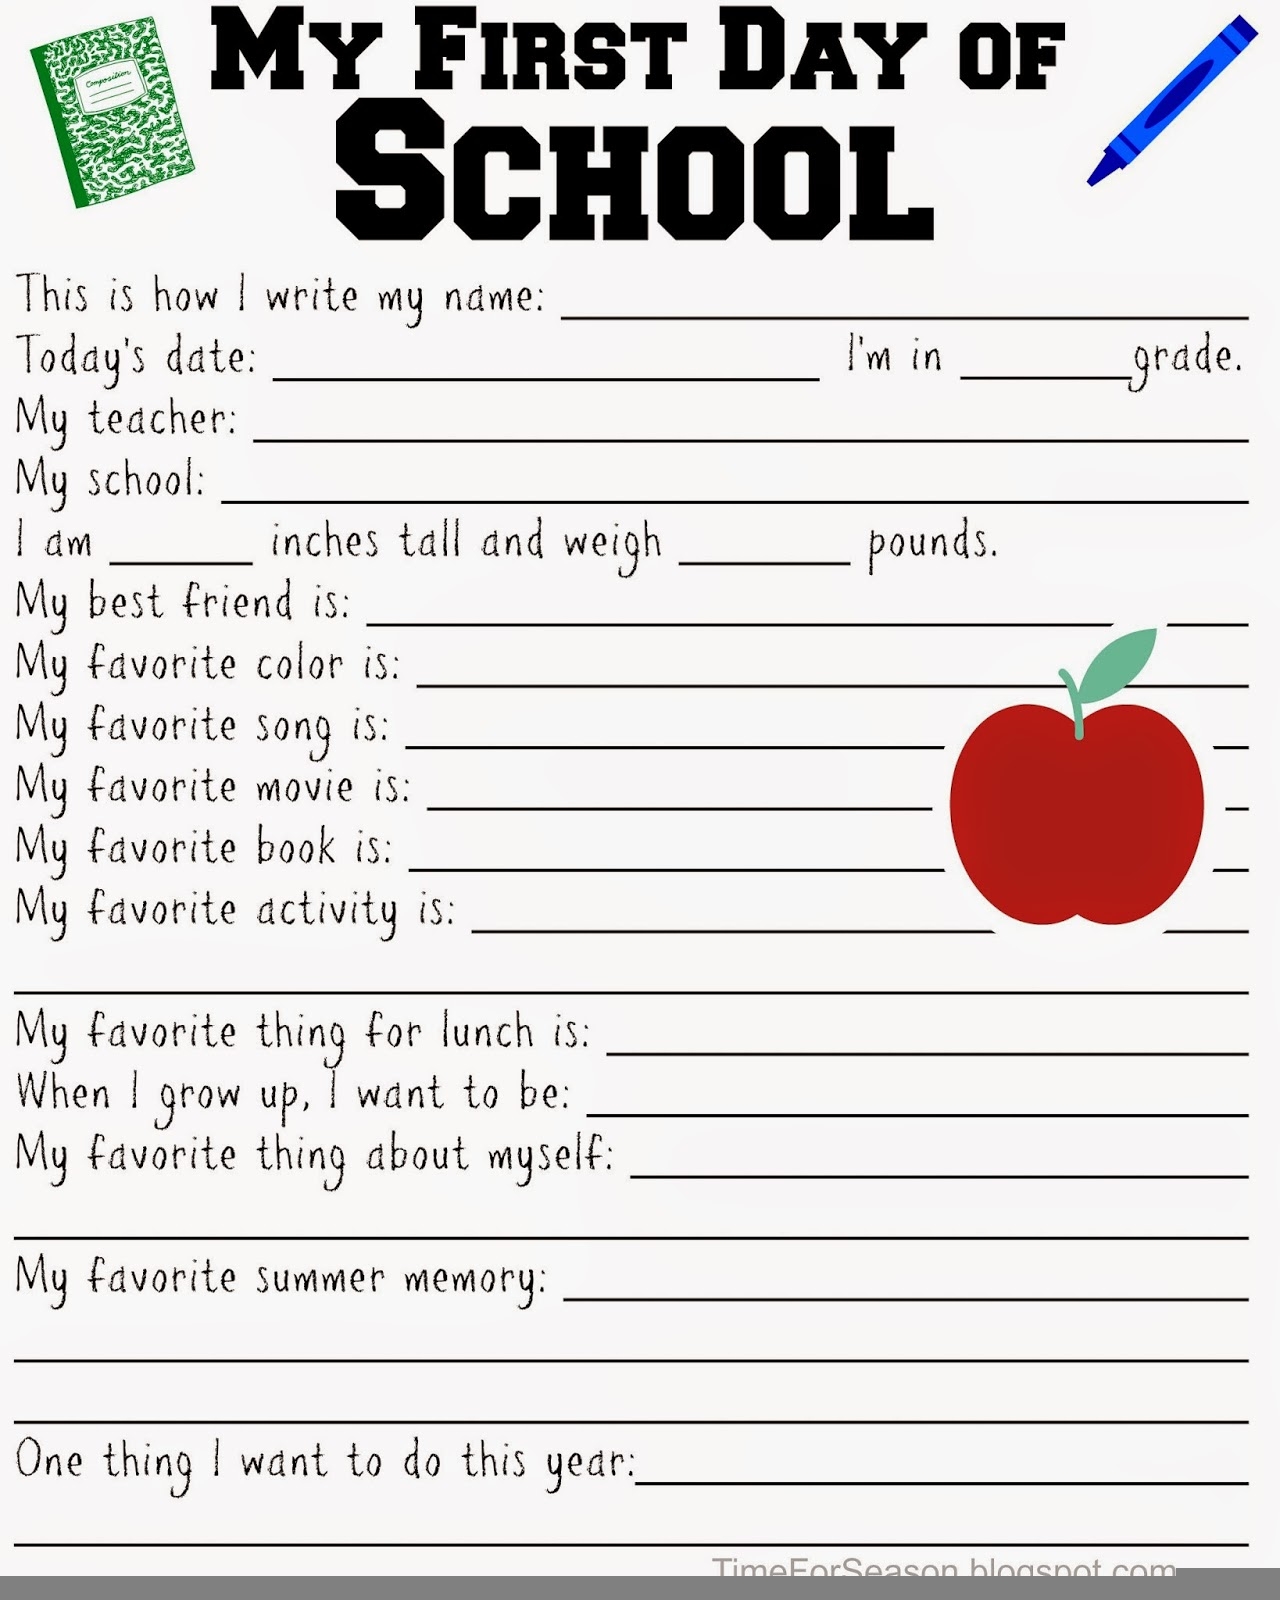 My First Day of
School
Composition
This is how I write my name:
Today's date: I'm in grade.
My teacher:
My school:
I am inches tall and weigh pounds.
My best friend is:
My favorite color is:
My favorite song is:
My favorite movie is:
My favorite book is:
My favorite activity is:
My favorite thing for lunch is:
When I grow up, I want to be:
My favorite thing about myself:
My favorite summer memory:
One thing I want to do this year:
TimeForSeason.blogspot.com